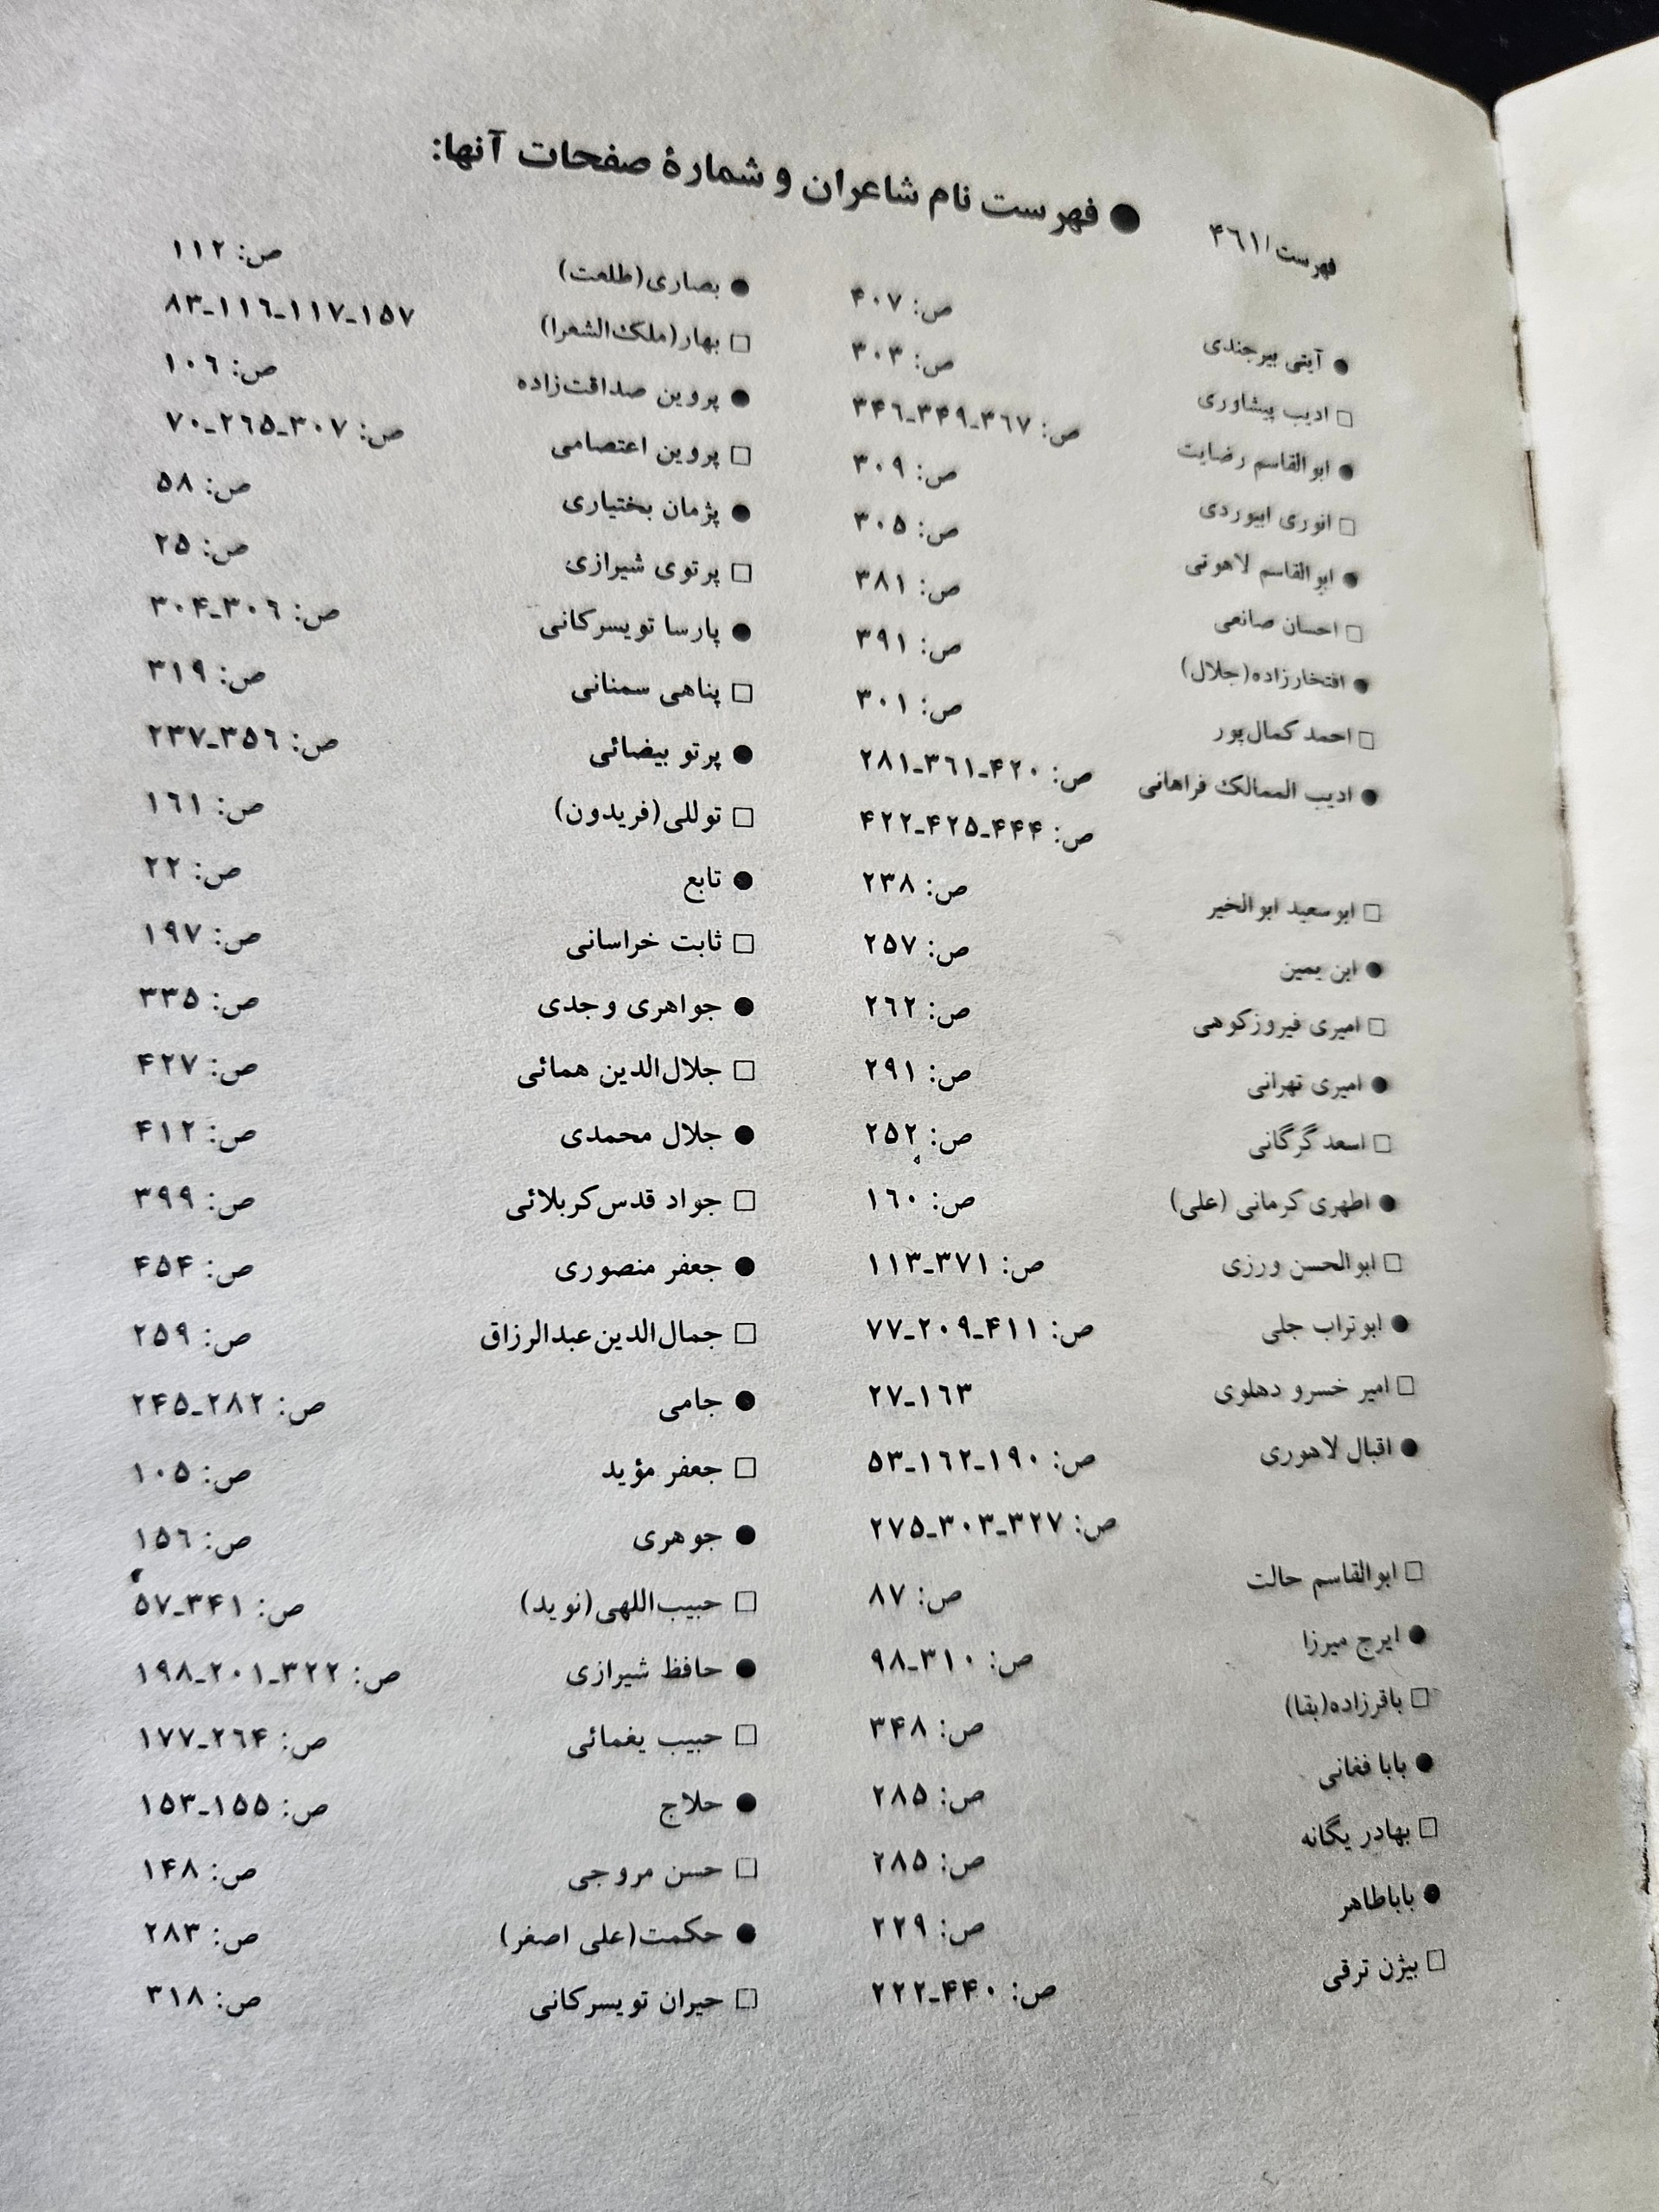 فهرست/۴٦۱
● فهرست نام شاعران و شمارهٔ صفحات آنها:
● آیتی بیرجندی ص: ۴۰۷
□ ادیب پیشاوری ص: ۳۰۳
● ابوالقاسم رضایت ص: ۳۴٦ـ۳۴۹ـ۳٦۷
□ انوری ابیوردی ص: ۳۰۹
● ابوالقاسم لاهوتی ص: ۳۰۵
□ احسان صانعی ص: ۳۸۱
● افتخارزاده(جلال) ص: ۳۹۱
□ احمد کمال‌پور ص: ۳۰۱
● ادیب الممالک فراهانی ص: ۲۸۱ـ۳٦۱ـ۴۲۰
ص: ۴۲۲ـ۴۲۵ـ۴۴۴
□ ابوسعید ابوالخیر ص: ۲۳۸
● ابن یمین ص: ۲۵۷
□ امیری فیروزکوهی ص: ۲٦۲
● امیری تهرانی ص: ۲۹۱
□ اسعد گرگانی ص: ۲۵۲
● اطهری کرمانی (علی) ص: ۱٦۰
□ ابوالحسن ورزی ص: ۱۱۳ـ۳۷۱
● ابوتراب جلی ص: ۷۷ـ۲۰۹ـ۴۱۱
□ امیر خسرو دهلوی ۲۷ـ۱٦۳
● اقبال لاهوری ص: ۵۳ـ۱٦۲ـ۱۹۰
ص: ۲۷۵ـ۳۰۳ـ۳۲۷
□ ابوالقاسم حالت ص: ۸۷
● ایرج میرزا ص: ۹۸ـ۳۱۰
□ باقرزاده(بقا) ص: ۳۴۸
● بابا فغانی ص: ۲۸۵
□ بهادر یگانه ص: ۲۸۵
● باباطاهر ص: ۲۲۹
□ بیژن ترقی ص: ۲۲۲ـ۴۴۰
● بصاری(طلعت) ص: ۱۱۲
□ بهار(ملک‌الشعرا) ۸۳ـ۱۱٦ـ۱۱۷ـ۱۵۷
● پروین صداقت‌زاده ص: ۱۰٦
□ پروین اعتصامی ص: ۷۰ـ۲٦۵ـ۳۰۷
● پژمان بختیاری ص: ۵۸
□ پرتوی شیرازی ص: ۲۵
● پارسا تویسرکانی ص: ۳۰۴ـ۳۰٦
□ پناهی سمنانی ص: ۳۱۹
● پرتو بیضائی ص: ۲۳۷ـ۳۵٦
□ توللی(فریدون) ص: ۱٦۱
● تابع ص: ۲۲
□ ثابت خراسانی ص: ۱۹۷
● جواهری وجدی ص: ۳۳۵
□ جلال‌الدین همائی ص: ۴۲۷
● جلال محمدی ص: ۴۱۲
□ جواد قدس‌کربلائی ص: ۳۹۹
● جعفر منصوری ص: ۴۵۴
□ جمال‌الدین‌عبدالرزاق ص: ۲۵۹
● جامی ص: ۲۴۵ـ۲۸۲
□ جعفر مؤید ص: ۱۰۵
● جوهری ص: ۱۵٦
□ حبیب‌اللهی(نوید) ص: ۵۷ـ۳۴۱
● حافظ شیرازی ص: ۱۹۸ـ۲۰۱ـ۳۲۲
□ حبیب یغمائی ص: ۱۷۷ـ۲٦۴
● حلاج ص: ۱۵۳ـ۱۵۵
□ حسن مروجی ص: ۱۴۸
● حکمت(علی اصغر) ص: ۲۸۳
□ حیران تویسرکانی ص: ۳۱۸